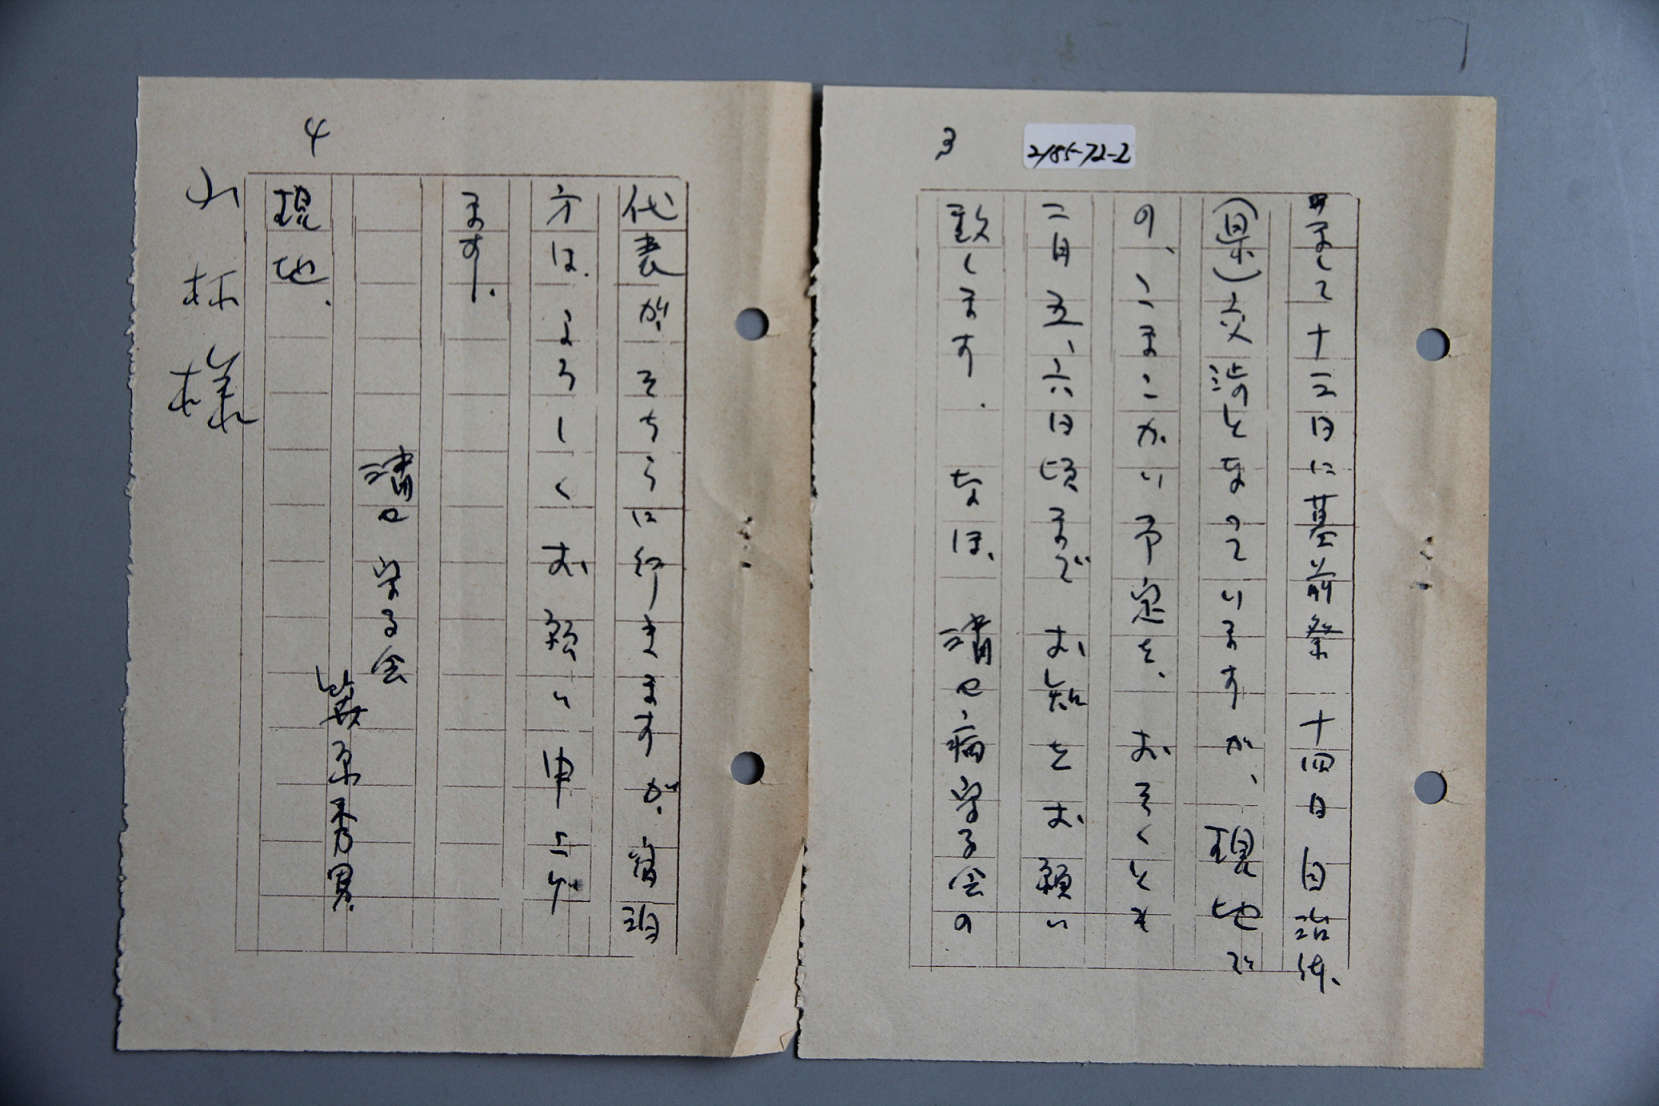 3
2185-72-2
そして十三日に墓前祭 十四日 自治体、
(県)交渉となっていますが、現地で
の、こまこかい予定を、おそくとも
二月五、六日頃までお知をお願い
致します. なほ、病守る会の
4
代表がそちらに行きますが、宿泊
方は、よろしくお願い申上げ
ます.
守る会
原秀男
現地.
小林様